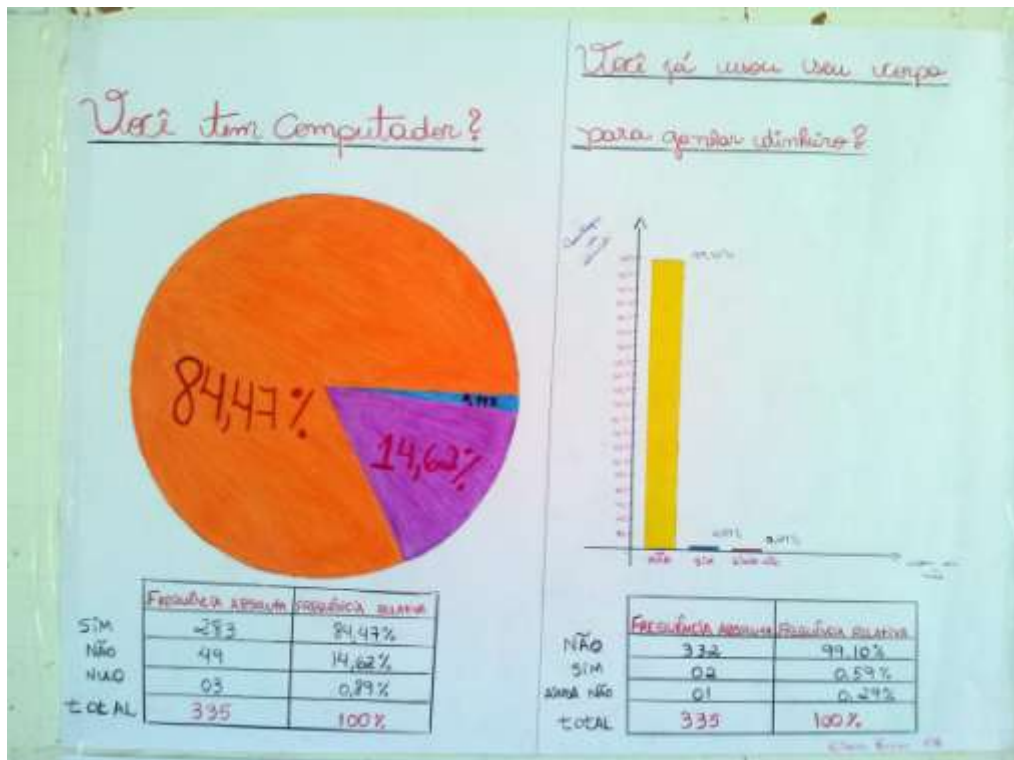 Você tem Computador?
84,47%
14,62%
FREQUÊNCIA ABSOLUTA FREQUÊNCIA RELATIVA
SIM 283 84,47%
NÃO 49 14,62%
NULO 03 0,89%
TOTAL 335 100%
Você já usou seu corpo
para ganhar dinheiro?
NÃO SIM
FREQUÊNCIA ABSOLUTA FREQUÊNCIA RELATIVA
NÃO 332 99,10%
SIM 02 0,59%
AINDA NÃO 01 0,29%
TOTAL 335 100%